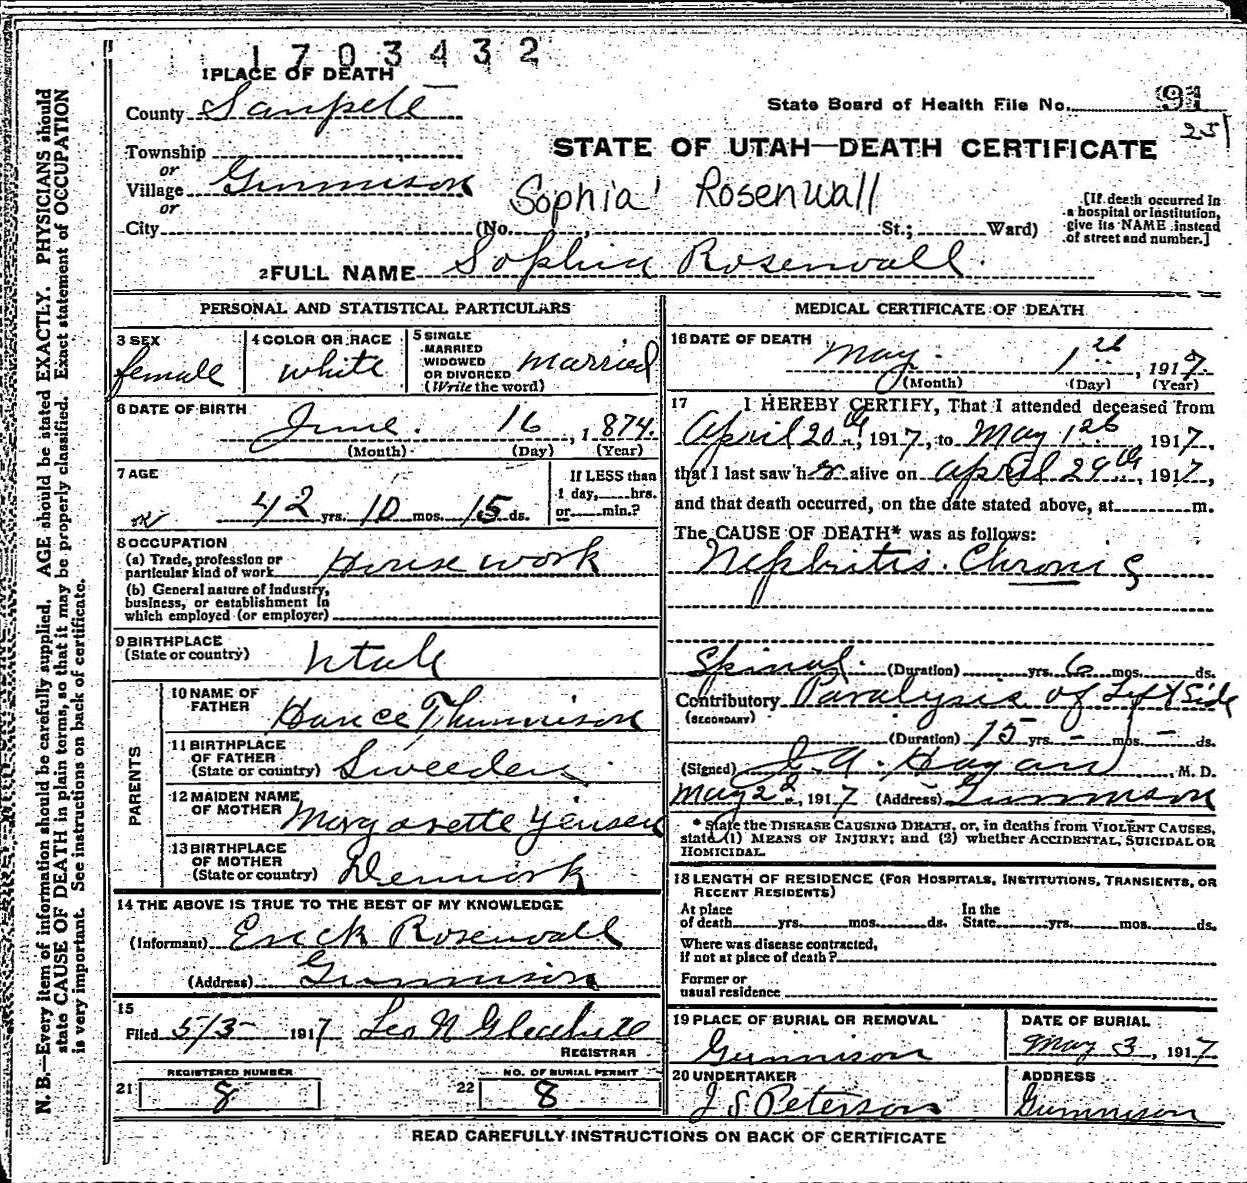 1703432
1 PLACE OF DEATH
County Sanpete
State Board of Health File No. 91
251
Township
or
Village Gunnison
or
City (No. St.; Ward)
STATE OF UTAH—DEATH CERTIFICATE
Sophia Rosenwall
[If death occurred in
a hospital or institution,
give its NAME instead
of street and number.]
2 FULL NAME Sophia Rosenwall
PERSONAL AND STATISTICAL PARTICULARS
3 SEX
female
4 COLOR OR RACE
white
5 SINGLE
MARRIED
WIDOWED
OR DIVORCED
(Write the word)
married
6 DATE OF BIRTH
June 16, 1874.
(Month) (Day) (Year)
7 AGE
42 yrs. 10 mos. 15 ds.
If LESS than
1 day, hrs.
or min.?
8 OCCUPATION
(a) Trade, profession or
particular kind of work House work
(b) General nature of industry,
business, or establishment in
which employed (or employer)
9 BIRTHPLACE
(State or country) Utah
PARENTS
10 NAME OF
FATHER Hance Thunnison
11 BIRTHPLACE
OF FATHER
(State or country) Sweeden
12 MAIDEN NAME
OF MOTHER Margarette Yensen
13 BIRTHPLACE
OF MOTHER
(State or country) Denmark
14 THE ABOVE IS TRUE TO THE BEST OF MY KNOWLEDGE
(Informant) Erick Rosenwall
(Address) Gunnison
15
Filed 5/3 1917 Leo N
REGISTRAR
21 REGISTERED NUMBER
8
22 NO. OF BURIAL PERMIT
8
MEDICAL CERTIFICATE OF DEATH
16 DATE OF DEATH
May 1st, 1917
(Month) (Day) (Year)
17 I HEREBY CERTIFY, That I attended deceased from
April 20th, 1917, to May 1st 1917,
that I last saw her alive on April 29th, 1917,
and that death occurred, on the date stated above, at m.
The CAUSE OF DEATH* was as follows:
Nephritis. Chronic
Spinal. (Duration) yrs. 6 mos. ds.
Contributory Paralysis of Left Side
(SECONDARY)
(Duration) 15 yrs. - mos. - ds.
(Signed) J. A. Hagan, M. D.
May 2d, 1917 (Address) Gunnison
* State the DISEASE CAUSING DEATH, or, in deaths from VIOLENT CAUSES,
state (1) MEANS OF INJURY; and (2) whether ACCIDENTAL, SUICIDAL OR
HOMICIDAL.
18 LENGTH OF RESIDENCE (FOR HOSPITALS, INSTITUTIONS, TRANSIENTS, OR
RECENT RESIDENTS)
At place
of death yrs. mos. ds.
In the
State yrs. mos. ds.
Where was disease contracted,
if not at place of death?
Former or
usual residence
19 PLACE OF BURIAL OR REMOVAL
Gunnison
DATE OF BURIAL
May 3, 1917
20 UNDERTAKER
J S Peterson
ADDRESS
Gunnison
READ CAREFULLY INSTRUCTIONS ON BACK OF CERTIFICATE
N. B.—Every item of information should be carefully supplied. AGE should be stated EXACTLY. PHYSICIANS should
state CAUSE OF DEATH in plain terms, so that it may be properly classified. Exact statement of OCCUPATION
is very important. See instructions on back of certificate.